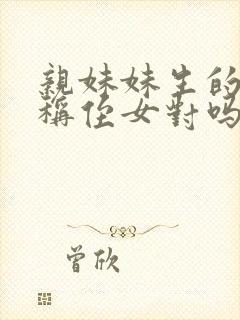 親妹妹生的
稱侄女對吗
曾欣